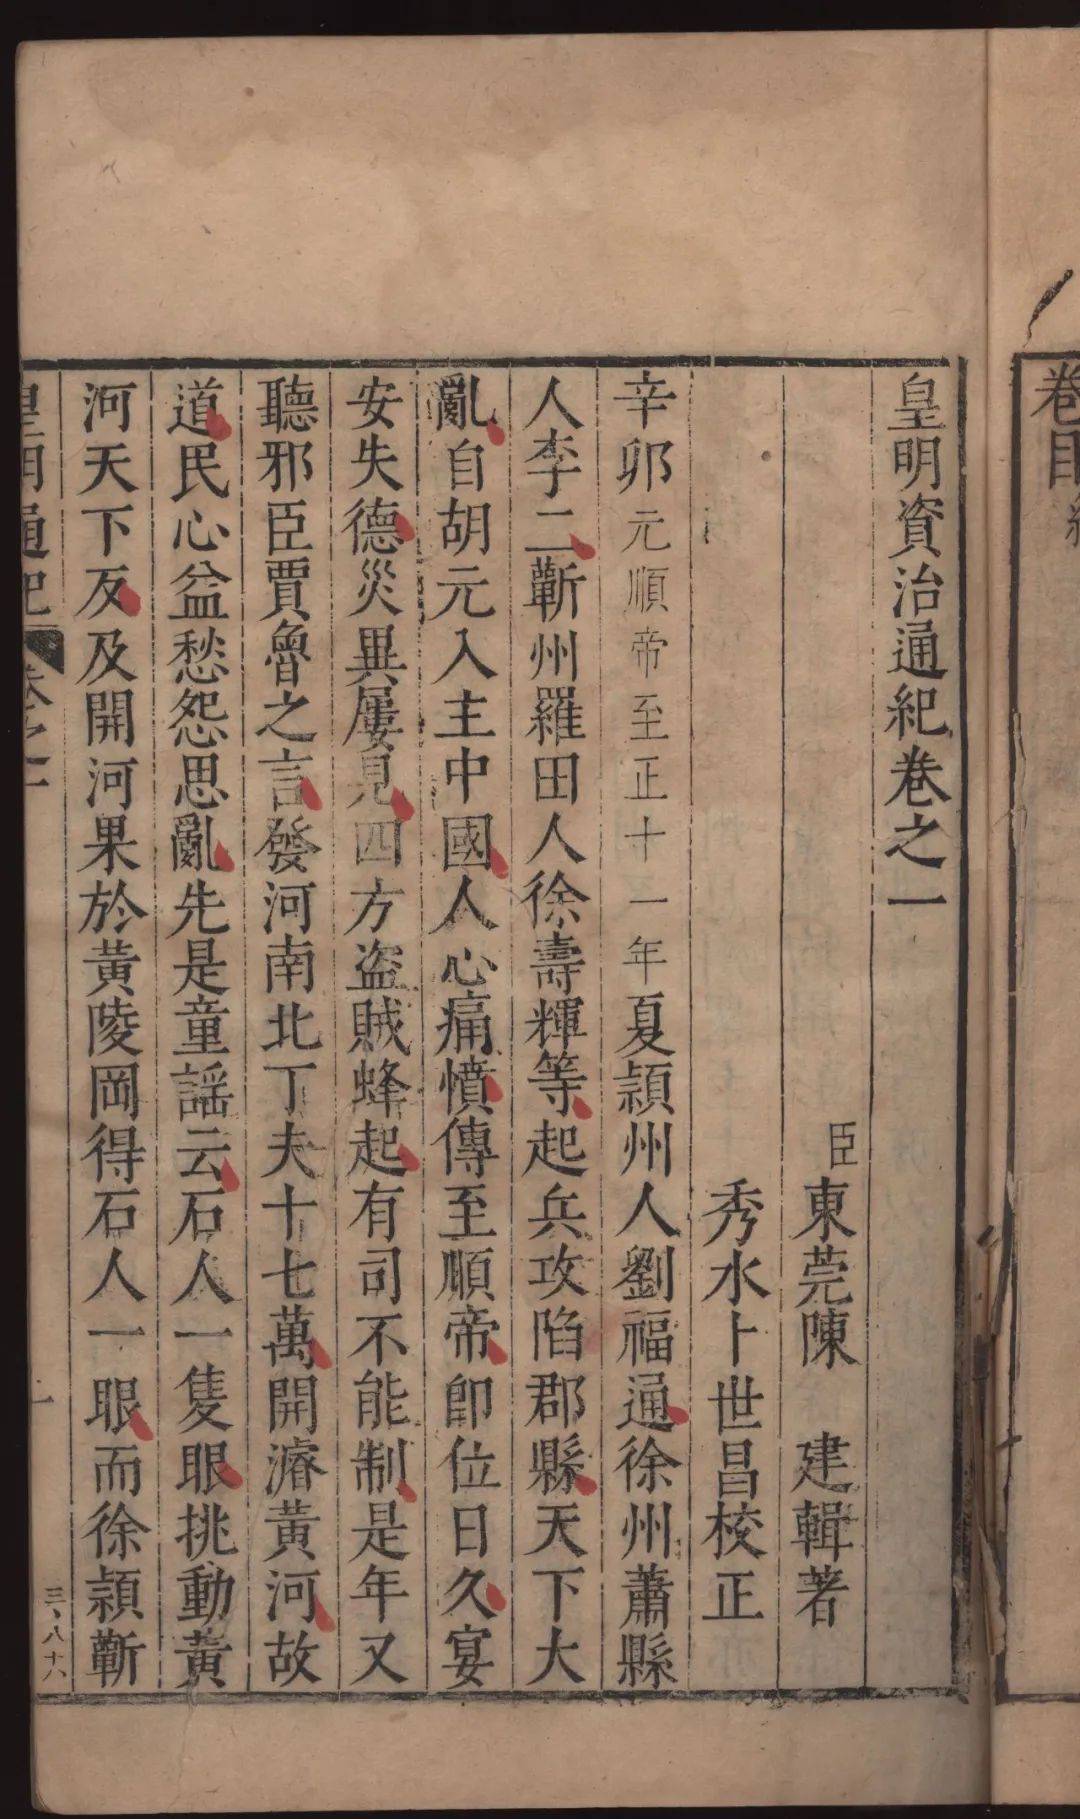 卷目
皇明資治通紀卷之一
臣東莞陳 建輯著
秀水卜世昌校正
辛卯元順帝至正十一年夏潁州人劉福通徐州蕭縣
人李二蘄州羅田人徐壽輝等起兵攻陷郡縣天下大
亂自胡元入主中國人心痛憤傳至順帝卽位日久宴
安失德災異屢見四方盜賊蜂起有司不能制是年又
聽邪臣賈魯之言發河南北丁夫十七萬開濬黃河故
道民心益愁怨思亂先是童謠云石人一隻眼挑動黃
河天下反及開河果於黃陵岡得石人一眼而徐潁蘄
皇明通紀 卷之一 一 三、八十六